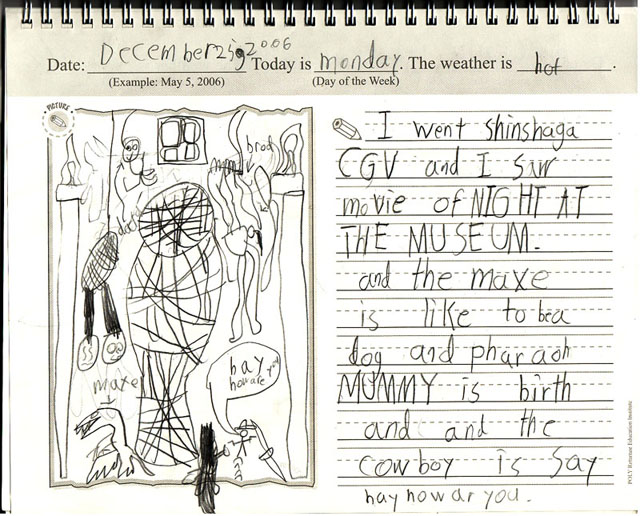 Date: December 25, 2006 Today is monday. The weather is hot.
(Example: May 5, 2006) (Day of the Week)
PICTURE
brad
maxe
hay
how are you
I went shinshaga
CGV and I saw
movie of NIGHT AT
THE MUSEUM.
and the maxe
is like to bea
dog and pharaoh
MUMMY is birth
and and the
cowboy is say
hay how ar you.
POLY Retumee Education Institute